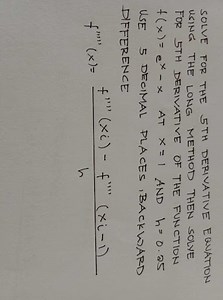 SOLVE FOR THE 5TH DERIVATIVE EQUATION
USING THE LONG METHOD THEN SOLVE
FOR 5TH DERIVATIVE OF THE FUNCTION
f(x) = e^x - x AT x = 1 AND h = 0.25
USE 5 DECIMAL PLACES, BACKWARD
DIFFERENCE
f'''''(x) = f''''(xi) - f''''(xi-1)
h